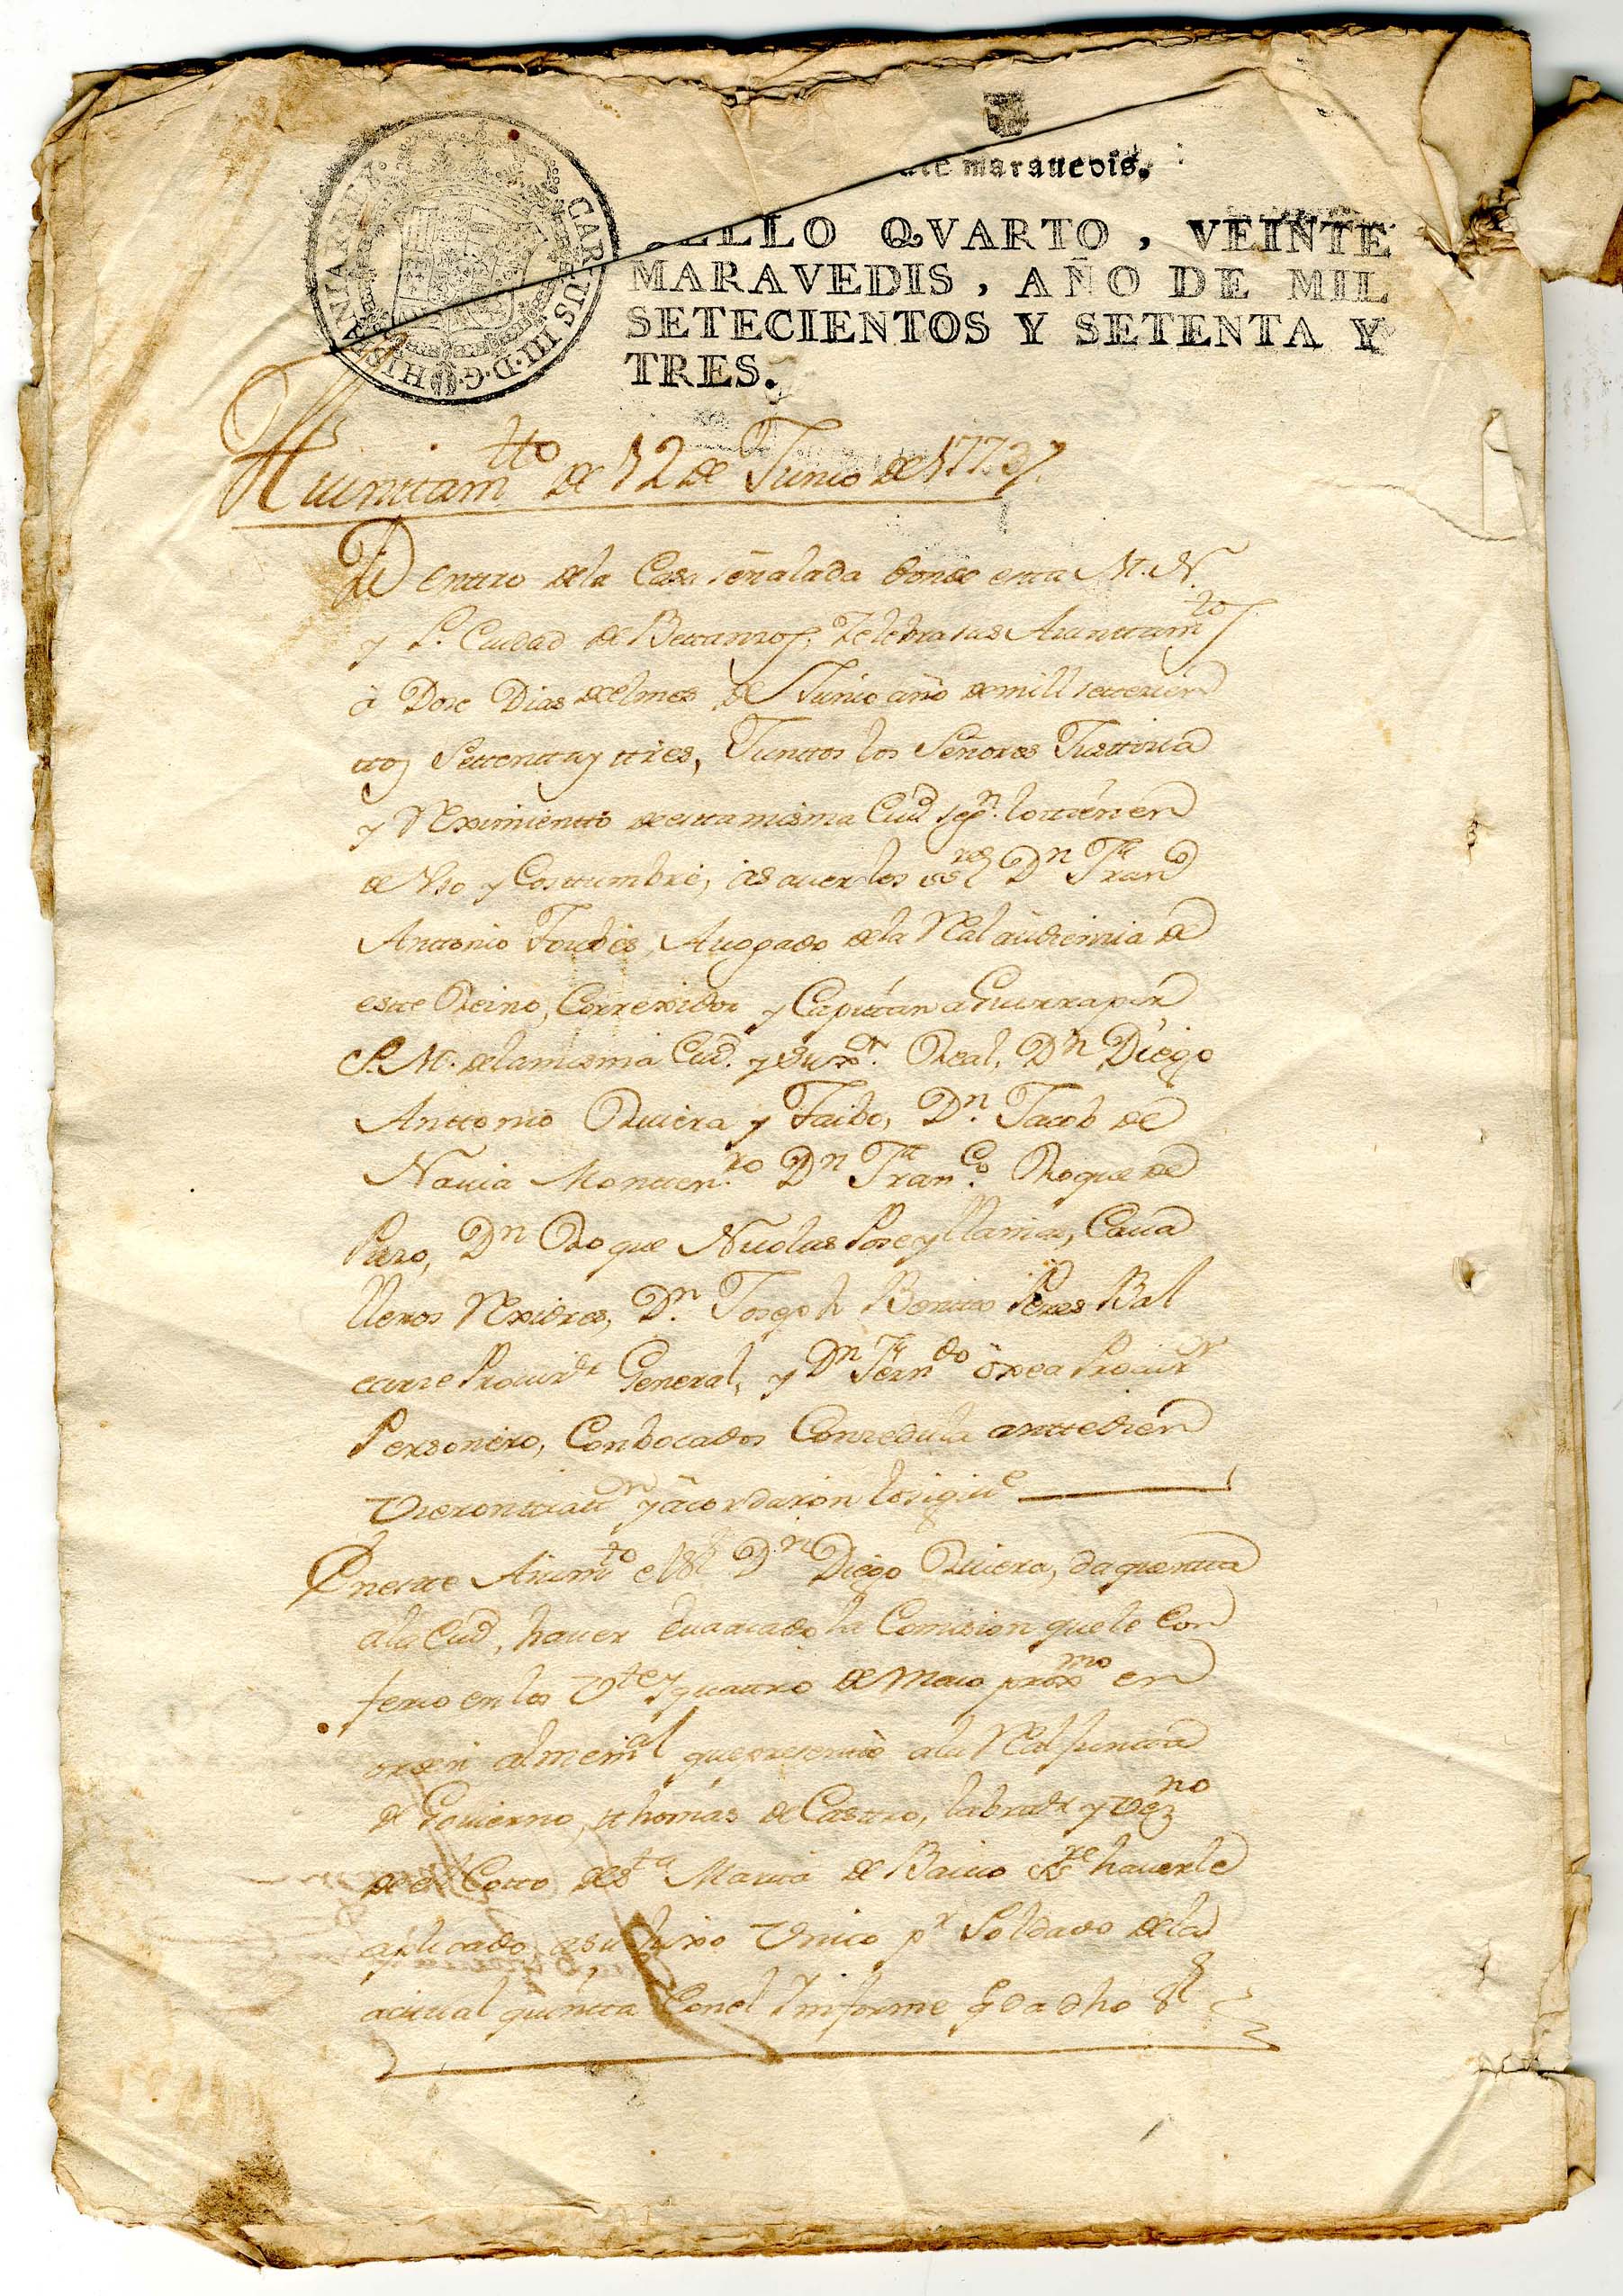 CAROLUS III·D·G·HISPANIAR·REX·
maravedis.
SELLO QVARTO, VEINTE
MARAVEDIS, AÑO DE MIL
SETECIENTOS Y SETENTA Y
TRES.
Aiunttam.tto de 12 de Junio de 1773
Dentro dela Casa señalada donde esta M. N.
y L. Ciudad de Bettanzos, Zelebra sus Aiunttam.tos
à Doze Dias del mes de Junio año de mill settecien
ttos Settentta y ttres, Junttos los Señores Justticia
y Reximientto de esta misma Ciud. seg.n lo ttienen
de Vso y Costtumbre, es a uer los ss.res D.n Fran.co
Anttonio Avogado de la Real audiencia de
este Reino, Correxidor y Capittan a Guerra por
S.M. de la misma Ciud. y su Real, D.n Diego
Anttonio Riuera y Taibo, D.n Jacob de
Nauia Montten.ro D.n Fran.co Roque de
D.n Roque Nicolas Pose y Caua
lleros Rexidores, D.n Joseph Benitto Peres Bal
carze Procur.or General, y D.n Fern.do Procur.or
Personero, Conbocados Conzedula antte dien
y acordaron lo sigui.e
En estte Aium.to el S.r D.n Diego Riuera, da quentta
ala Ciud, hauer Evacuado la Comision que le Con
ferio en los V.te y quattro de Maio prox.mo en
orden al mem.al que presenttò ala Real Juntta
de Govierno, thomas de Casttro, labrador y vez.no
de el Cotto de S.ta Maria de hauerle
aplicado a su hixo Vnico p.r Soldado de la
acttual quintta Con el Informe q da dho S.r